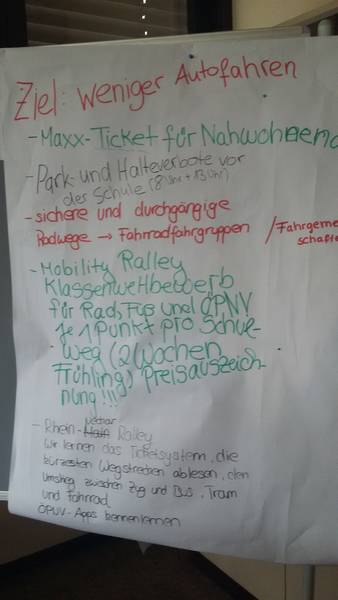 Ziel: weniger Autofahren
- Maxx-Ticket für Nahwohnend
- Park und Halteverbote vor
der Schule (8 Uhr + 13 Uhr)
- sichere und durchgängige
Radwege → Fahrradfahrgruppen / Fahrgeme
schafte
- Mobility Ralley
Klassenwettbewerb
für Rad, Fuß und ÖPNV
Je 1 Punkt pro Schul-
weg (2 Wochen
Frühling) Preisauszeich-
nung!!!
Neckar
- Rhein-Main Ralley
Wir lernen das Ticketsystem, die
kürzesten Wegstrecken ablesen, den
Umstieg zwischen Zug und Bus, Tram
und Fahrrad
ÖPVV-Apps kennenlernen